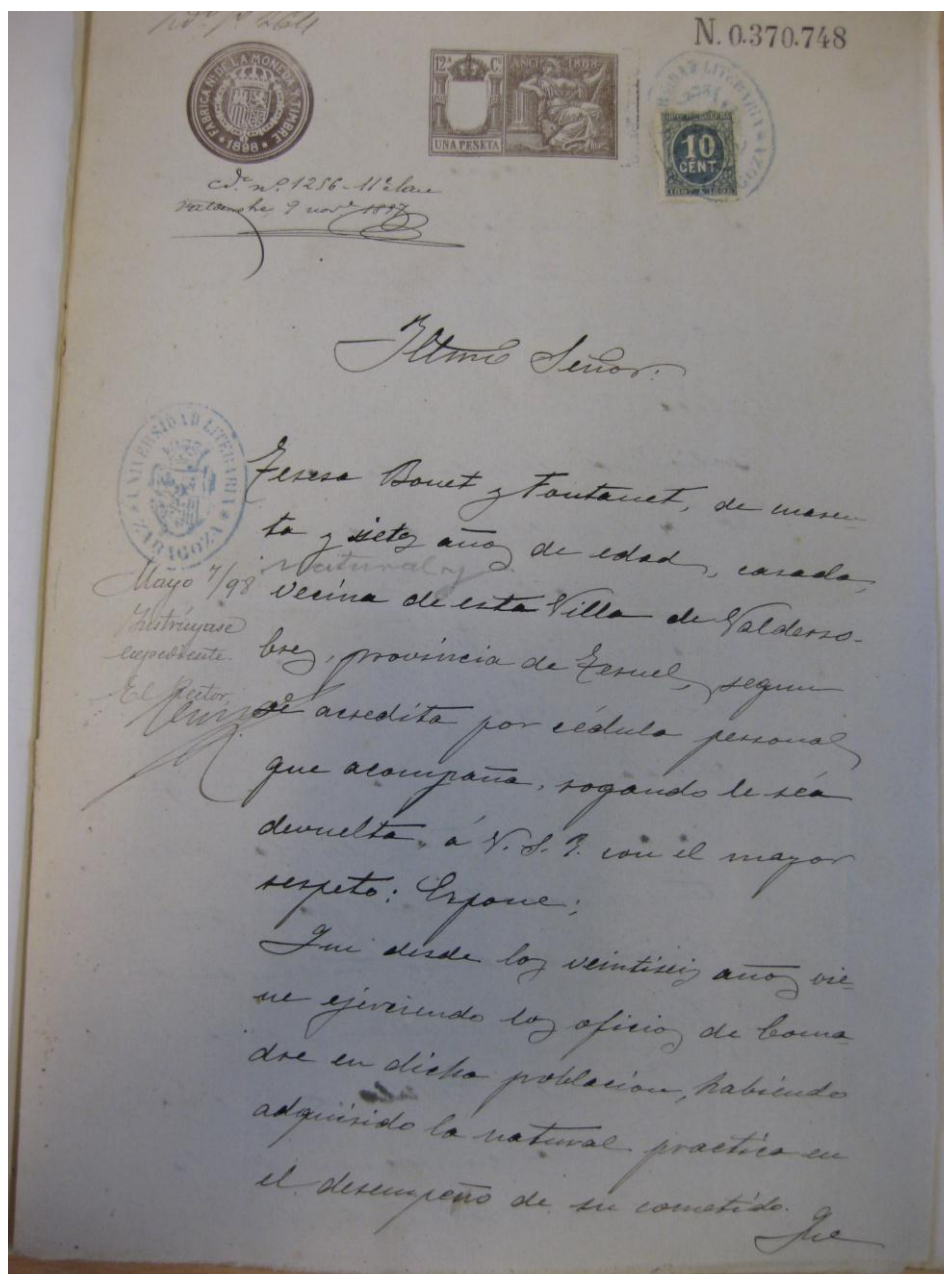 N. 0.370.748
FABRICA N. DE LA MONEDA Y TIMBRE
1898
12ª Cª AÑO 1898
UNA PESETA
10
CENT.
1897 A 1898
cª nº 1256 - 11ª clase
9 novᵉ 1897
Iltmo Señor:
UNIVERSIDAD LITERARIA
ZARAGOZA
Teresa Bonet y Fontanet, de cuaren
ta y siete años de edad, casada,
natural y
vecina de esta Villa de Valderro-
bres, provincia de Teruel, segun
se acredita por cédula personal
que acompaña, rogando le séa
devuelta, á V. S. I. con el mayor
respeto: Expone;
Que desde los veintiseis años vie-
ne ejerciendo los oficios de Coma
dre en dicha poblacion, habiendo
adquirido la natural practica en
el desempeño de su cometido.
Que
Mayo 7/98
Instrúyase
expediente.
El Rector,